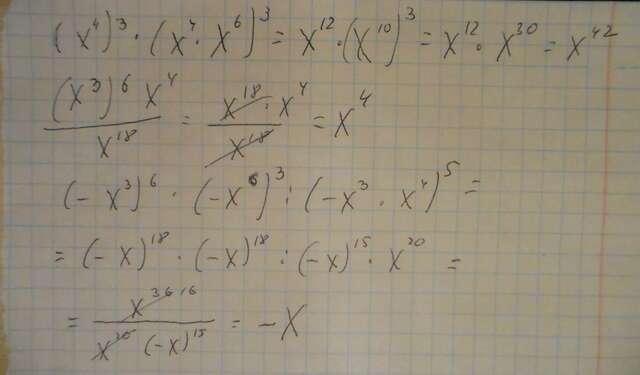 (x⁴)³ · (x⁴ · x⁶)³ = x¹² · (x¹⁰)³ = x¹² · x³⁰ = x⁴²
(x³)⁶ x⁴ / x¹⁸ = x¹⁸ · x⁴ / x¹⁸ = x⁴
(- x³)⁶ · (-x⁶)³ : (-x³ · x⁴)⁵ =
= (- x)¹⁸ · (-x)¹⁸ : (-x)¹⁵ · x²⁰ =
= x³⁶ ¹⁶ / x²⁰ (-x)¹⁵ = -x